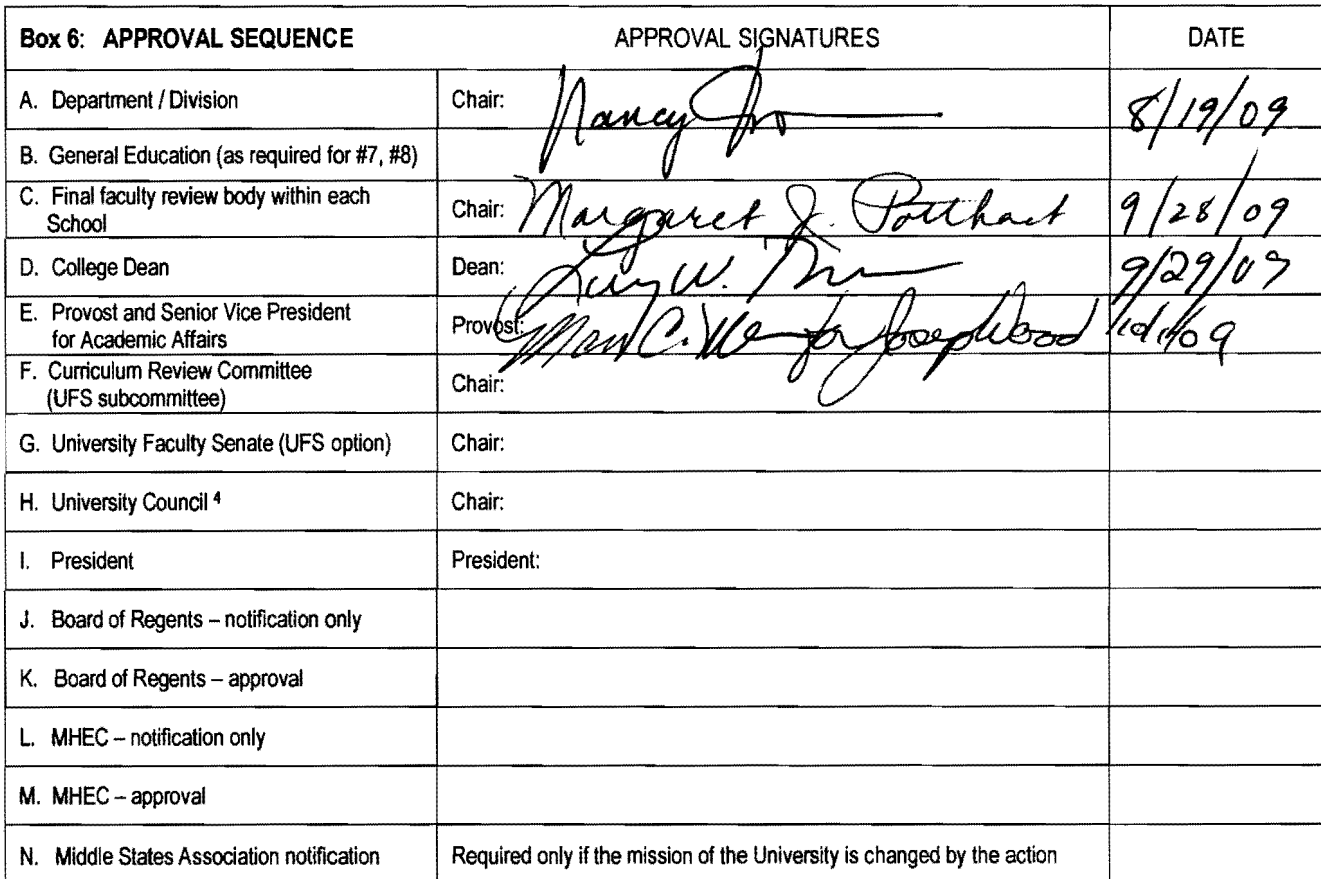 Box 6: APPROVAL SEQUENCE APPROVAL SIGNATURES DATE
A. Department / Division Chair: Nancy 8/19/09
B. General Education (as required for #7, #8)
C. Final faculty review body within each
School Chair: Margaret J. Potthast 9/28/09
D. College Dean Dean: Larry W. 9/29/09
E. Provost and Senior Vice President
for Academic Affairs Provost: C. for Joseph Wood
F. Curriculum Review Committee
(UFS subcommittee) Chair:
G. University Faculty Senate (UFS option) Chair:
H. University Council 4 Chair:
I. President President:
J. Board of Regents – notification only
K. Board of Regents – approval
L. MHEC – notification only
M. MHEC – approval
N. Middle States Association notification Required only if the mission of the University is changed by the action